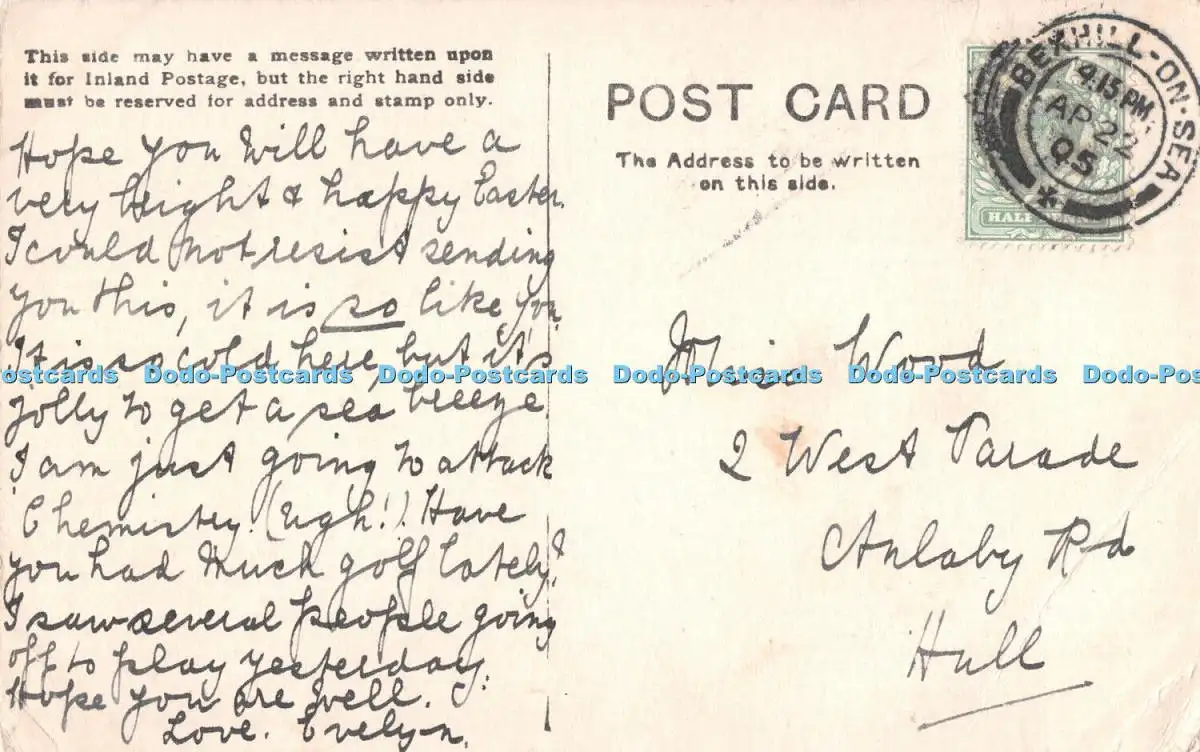 This side may have a message written upon
it for Inland Postage, but the right hand side
must be reserved for address and stamp only.
Hope you will have a
very bright & happy Easter.
I could not resist sending
you this, it is so like you.
It is so cold here, but it's
jolly to get a sea breeze.
I am just going to attack
Chemistry. (Ugh!). Have
you had much golf lately?
I saw several people going
off to play yesterday.
Hope you are well.
Love. Evelyn.
POST CARD
The Address to be written
on this side.
BEXHILL-ON-SEA
4.15 PM
AP 22
05
HALF
Miss Wood
2 West Parade
Anlaby Rd
Hull
ostcards Dodo-Postcards Dodo-Postcards Dodo-Postcards Dodo-Postcards Dodo-Pos